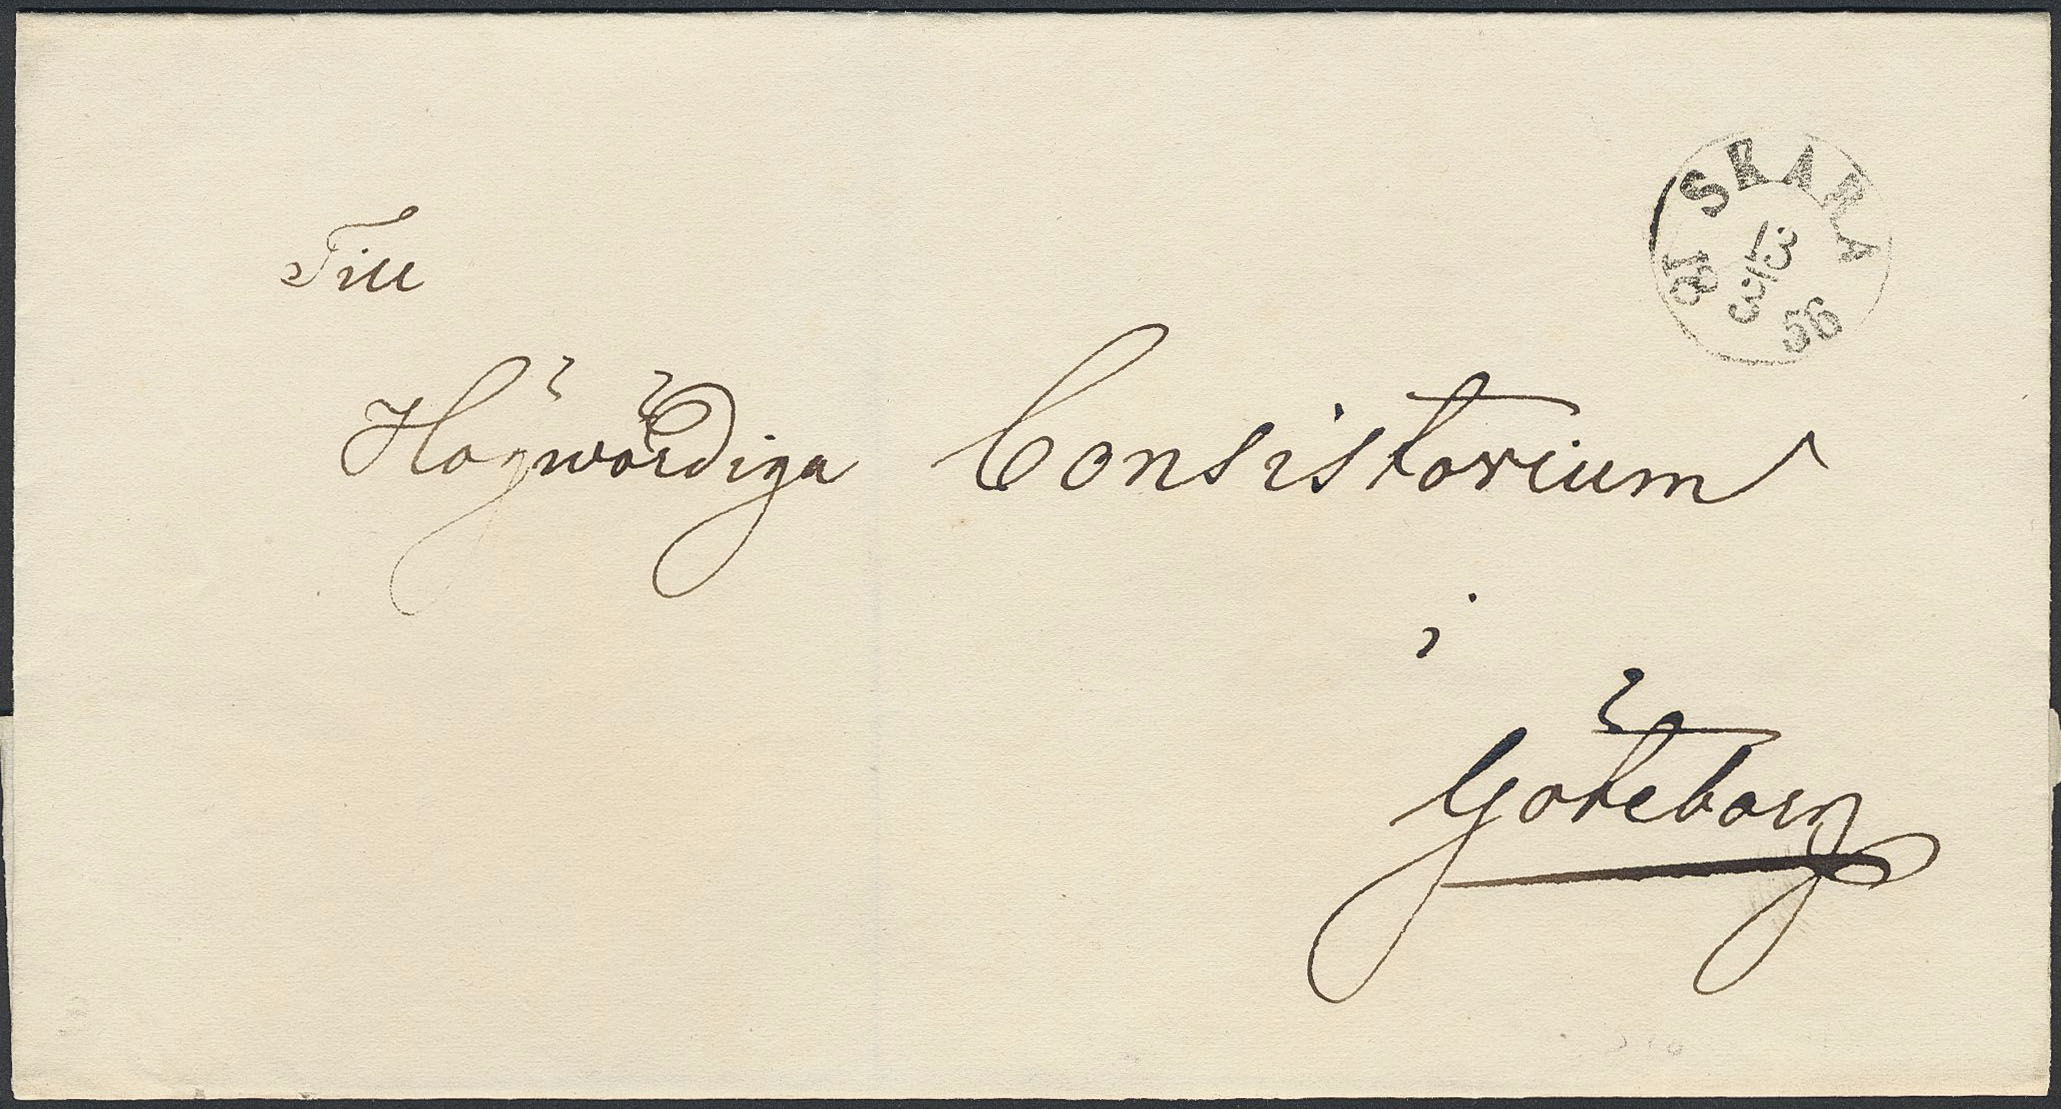 SKARA
13
3
18 56
Till
Högwördiga Consistorium
i
Göteborg